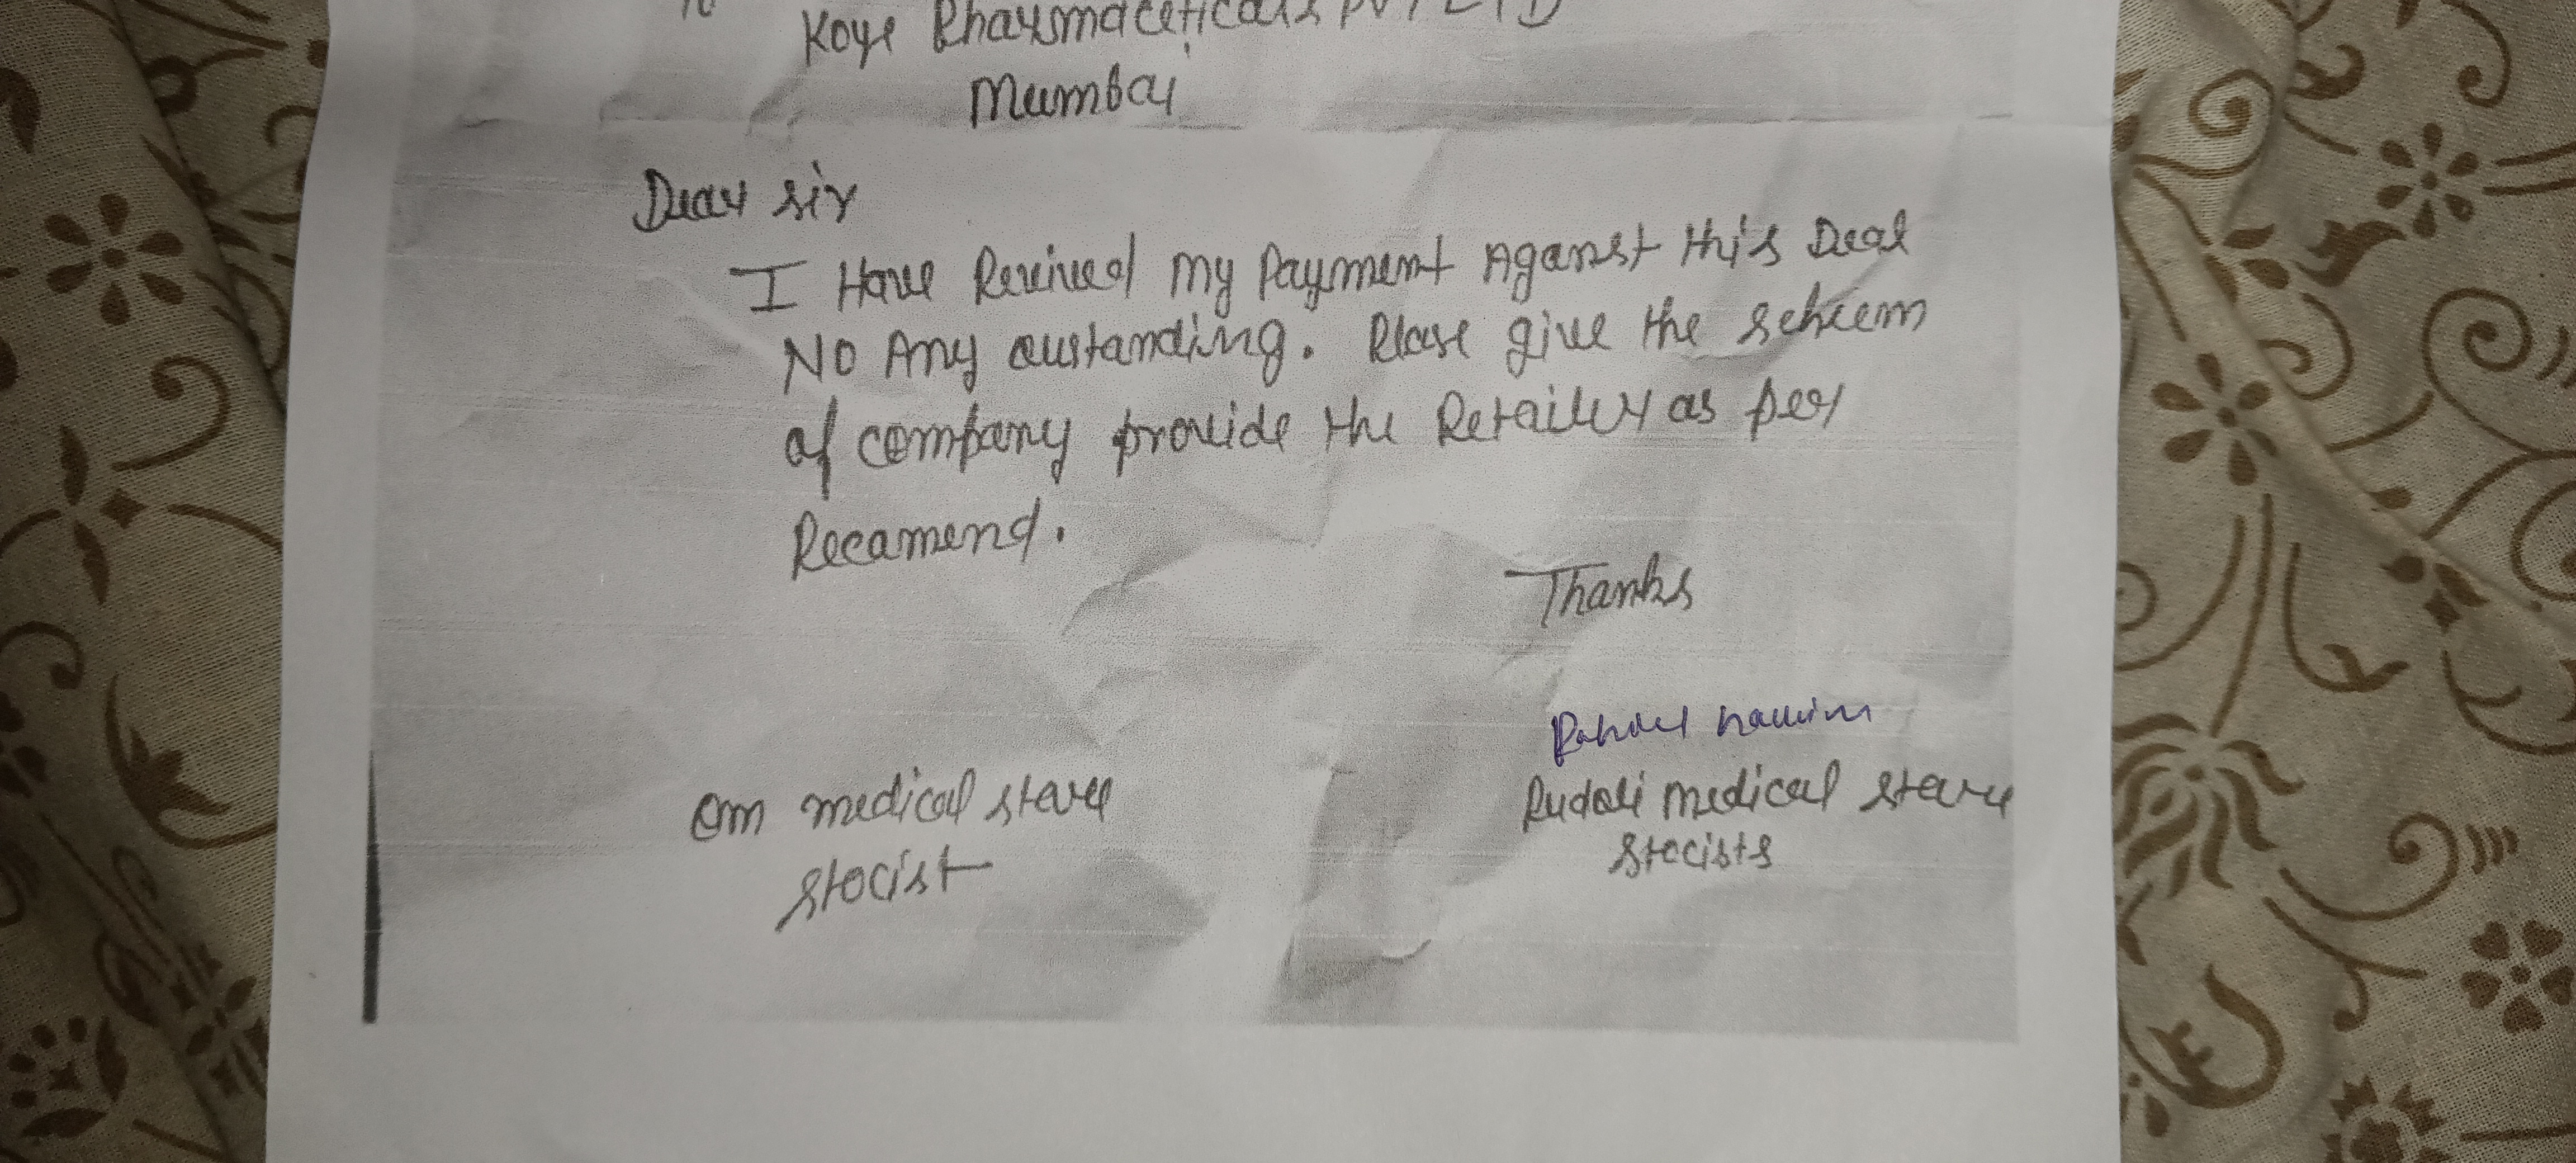 To
Koye Pharmaceticals PVT LTD
Mumbai
Dear sir
I Have Reeived my Payment Aganst this Deal
No Any oustanding. Please give the scheem
of company provide the Retailer as per
Recamend.
Thanks
Om medical store
stocist
Rudali medical store
stocists